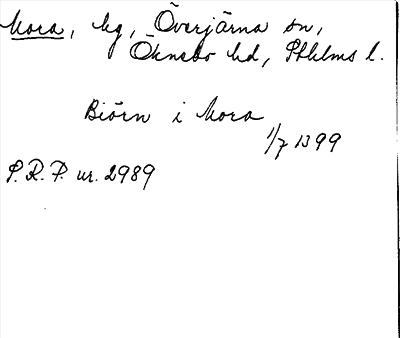 Mora, hg, Överjärna sn,
Öknebo hd, Sthlms l.
Biörn i Mora
1/7 1399
S.R.P. nr. 2989